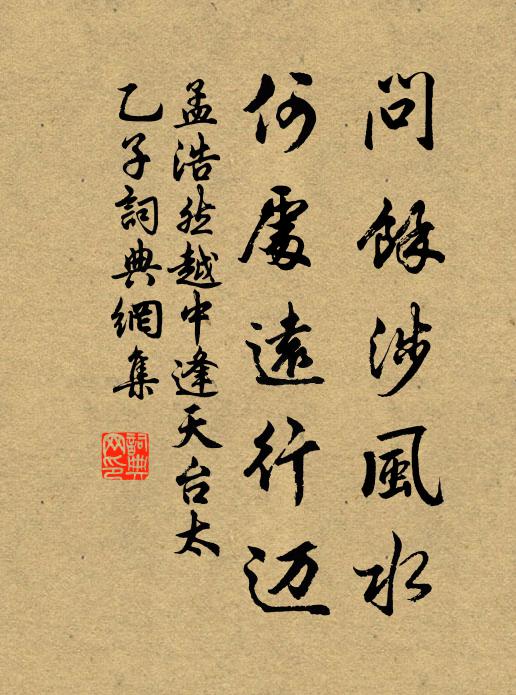 問餘涉風水
何處遠行迈
孟浩然越中逢天台太
乙子詞典網集
詞典网印